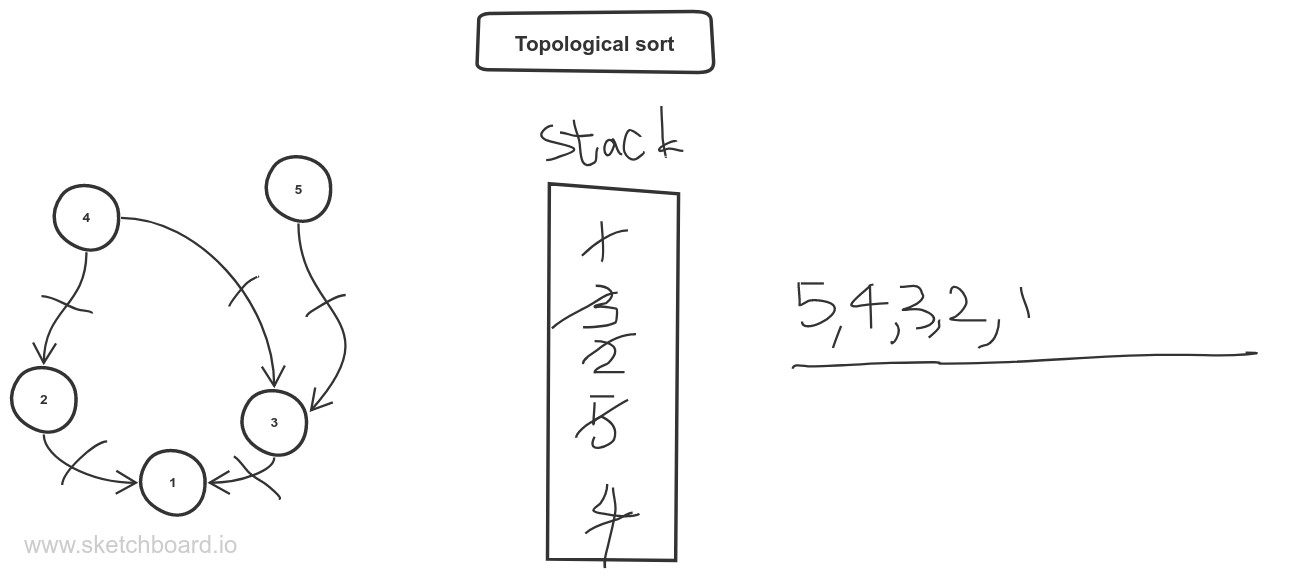 Topological sort
stack
5
4
1
3
2
5
4
5,4,3,2,1
2
3
1
www.sketchboard.io